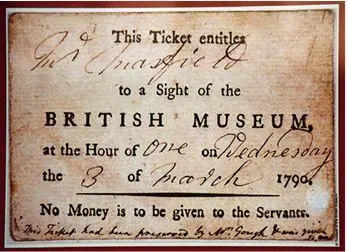 This Ticket entitles
Mr. Chasfield
to a Sight of the
BRITISH MUSEUM,
at the Hour of One on Wednesday
the 3 of March 1790.
No Money is to be given to the Servants.
This Ticket had been preserved by Mr. Gough & was given